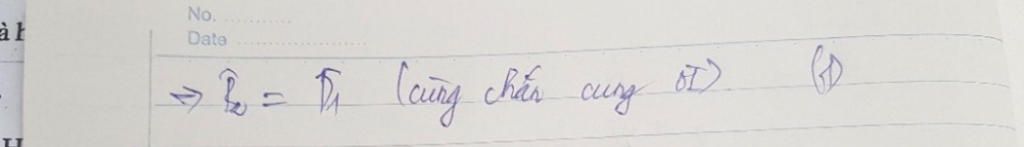 à h
No. ............
Date ....................
⇒ B̂₂ = D̂₁ (cùng chắn cung OI). (1)
H